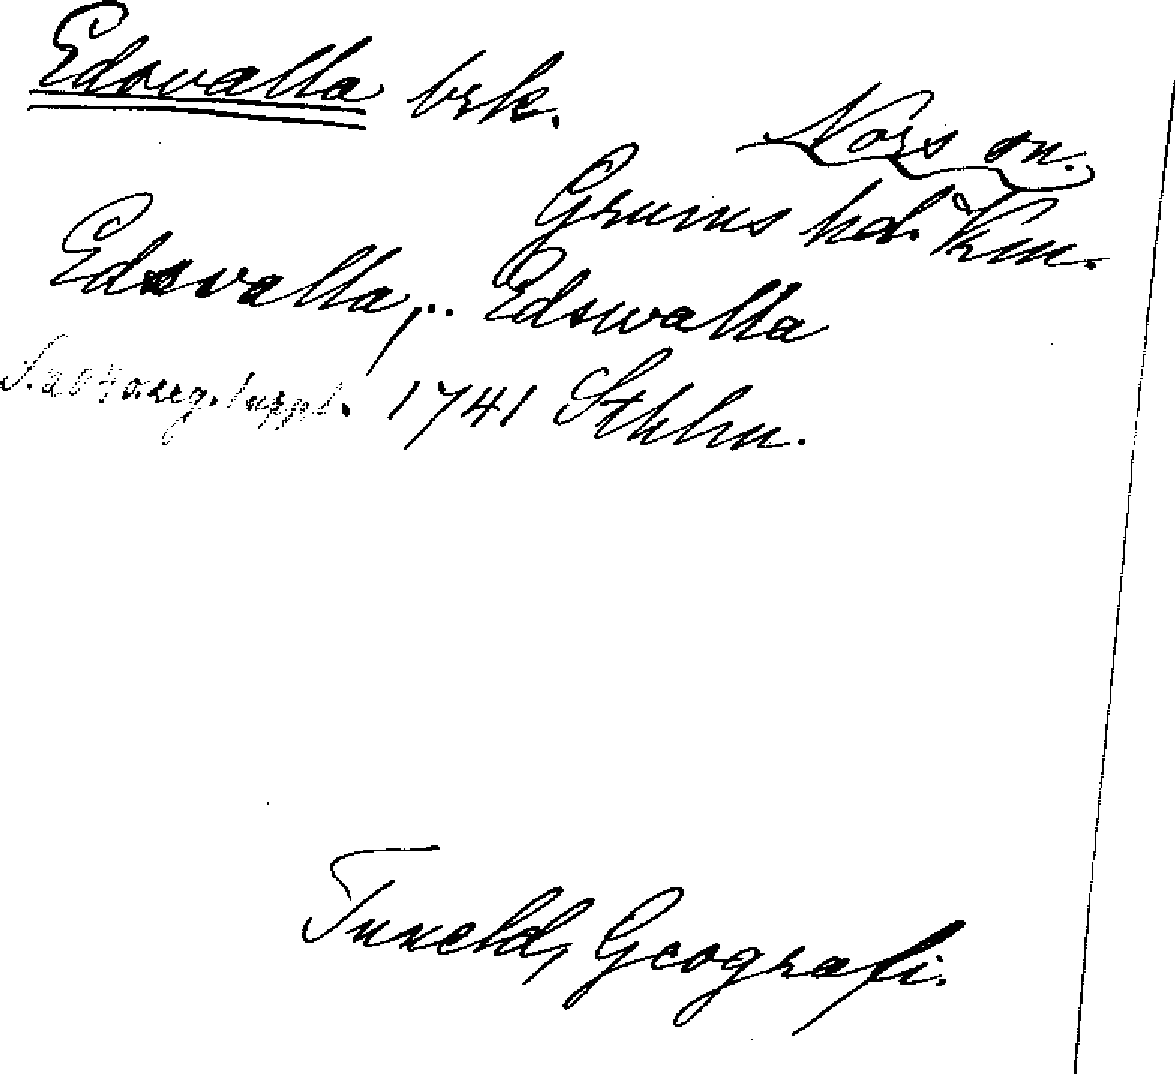 Edswalla brk.
Nors sn.
Grums hd. Vrm.
Edsvalla, Edswalla
suppl. 1741 Sthlm.
Tuneld, Geografi.